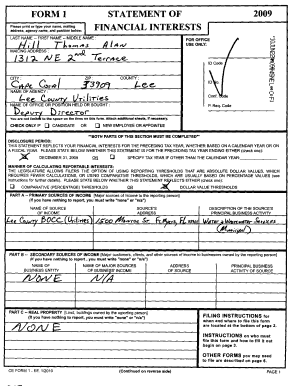 FORM 1 STATEMENT OF 2009
Please print or type your name, mailing address, agency name, and position below:
FINANCIAL INTERESTS
LAST NAME - FIRST NAME - MIDDLE NAME:
Hill Thomas Alan
MAILING ADDRESS:
1312 NE 2nd Terrace
FOR OFFICE USE ONLY:
ID Code
ID No.
Conf. Code
P. Req. Code
CITY: ZIP: COUNTY:
Cape Coral 33909 Lee
NAME OF AGENCY:
Lee County Utilities
NAME OF OFFICE OR POSITION HELD OR SOUGHT:
Deputy Director
You are not limited to the space on the lines on this form. Attach additional sheets, if necessary.
CHECK ONLY IF CANDIDATE OR NEW EMPLOYEE OR APPOINTEE
**BOTH PARTS OF THIS SECTION MUST BE COMPLETED**
DISCLOSURE PERIOD:
THIS STATEMENT REFLECTS YOUR FINANCIAL INTERESTS FOR THE PRECEDING TAX YEAR, WHETHER BASED ON A CALENDAR YEAR OR ON A FISCAL YEAR. PLEASE STATE BELOW WHETHER THIS STATEMENT IS FOR THE PRECEDING TAX YEAR ENDING EITHER (check one):
DECEMBER 31, 2009 OR SPECIFY TAX YEAR IF OTHER THAN THE CALENDAR YEAR:
MANNER OF CALCULATING REPORTABLE INTERESTS:
THE LEGISLATURE ALLOWS FILERS THE OPTION OF USING REPORTING THRESHOLDS THAT ARE ABSOLUTE DOLLAR VALUES, WHICH REQUIRES FEWER CALCULATIONS, OR USING COMPARATIVE THRESHOLDS, WHICH ARE USUALLY BASED ON PERCENTAGE VALUES (see instructions for further details). PLEASE STATE BELOW WHETHER THIS STATEMENT REFLECTS EITHER (check one):
COMPARATIVE (PERCENTAGE) THRESHOLDS OR DOLLAR VALUE THRESHOLDS
PART A -- PRIMARY SOURCES OF INCOME [Major sources of income to the reporting person]
(If you have nothing to report, you must write "none" or "n/a")
NAME OF SOURCE OF INCOME SOURCE'S ADDRESS DESCRIPTION OF THE SOURCE'S PRINCIPAL BUSINESS ACTIVITY
Lee County BOCC (Utilities) 1500 Monroe St. Ft Myers, FL Water & Wastewater Services
(Municipal)
PART B -- SECONDARY SOURCES OF INCOME [Major customers, clients, and other sources of income to businesses owned by the reporting person]
(If you have nothing to report, you must write "none" or "n/a")
NAME OF BUSINESS ENTITY NAME OF MAJOR SOURCES OF BUSINESS' INCOME ADDRESS OF SOURCE PRINCIPAL BUSINESS ACTIVITY OF SOURCE
NONE N/A
PART C -- REAL PROPERTY [Land, buildings owned by the reporting person]
(If you have nothing to report, you must write "none" or "n/a")
NONE
FILING INSTRUCTIONS for when and where to file this form are located at the bottom of page 2.
INSTRUCTIONS on who must file this form and how to fill it out begin on page 3.
OTHER FORMS you may need to file are described on page 6.
CE FORM 1 - Eff. 1/2010 (Continued on reverse side) PAGE 1